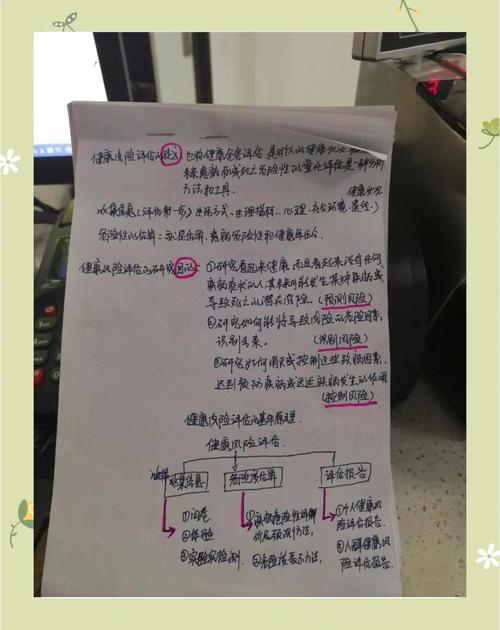 健康风险评估的定义 也称健康危害评估 是对个人的健康状况
未来患病而或死亡危险性的量化评估是一种分析
方法和工具.
健康状况
收集信息(评估第一步) 生活方式、生理指标、心理、社会环境、遗传.)
危险性的估算:就是估算、疾病危险性和健康年龄.
健康风险评估的研究目的: ①研究看起来健康 而且看起来没有任何
疾病症状的人, 其未来可能发生某种疾病或
导致死亡的潜在风险. (预测风险)
②研究如何能将导致风险的危险因素,
识别出来. (识别风险)
③研究如何消灭或控制这些致病因素,
达到预防疾病或延迟疾病发生的作用
(控制风险)
健康风险评估的基本原理.
健康风险评估.
收集信息 危险度估算 评估报告
①问卷
②体检
③实验室检测.
①疾病危险性评价
及预测方法,
②危险度表示方法.
①个人健康风
险评估报告.
②人群健康风
险评估报告.